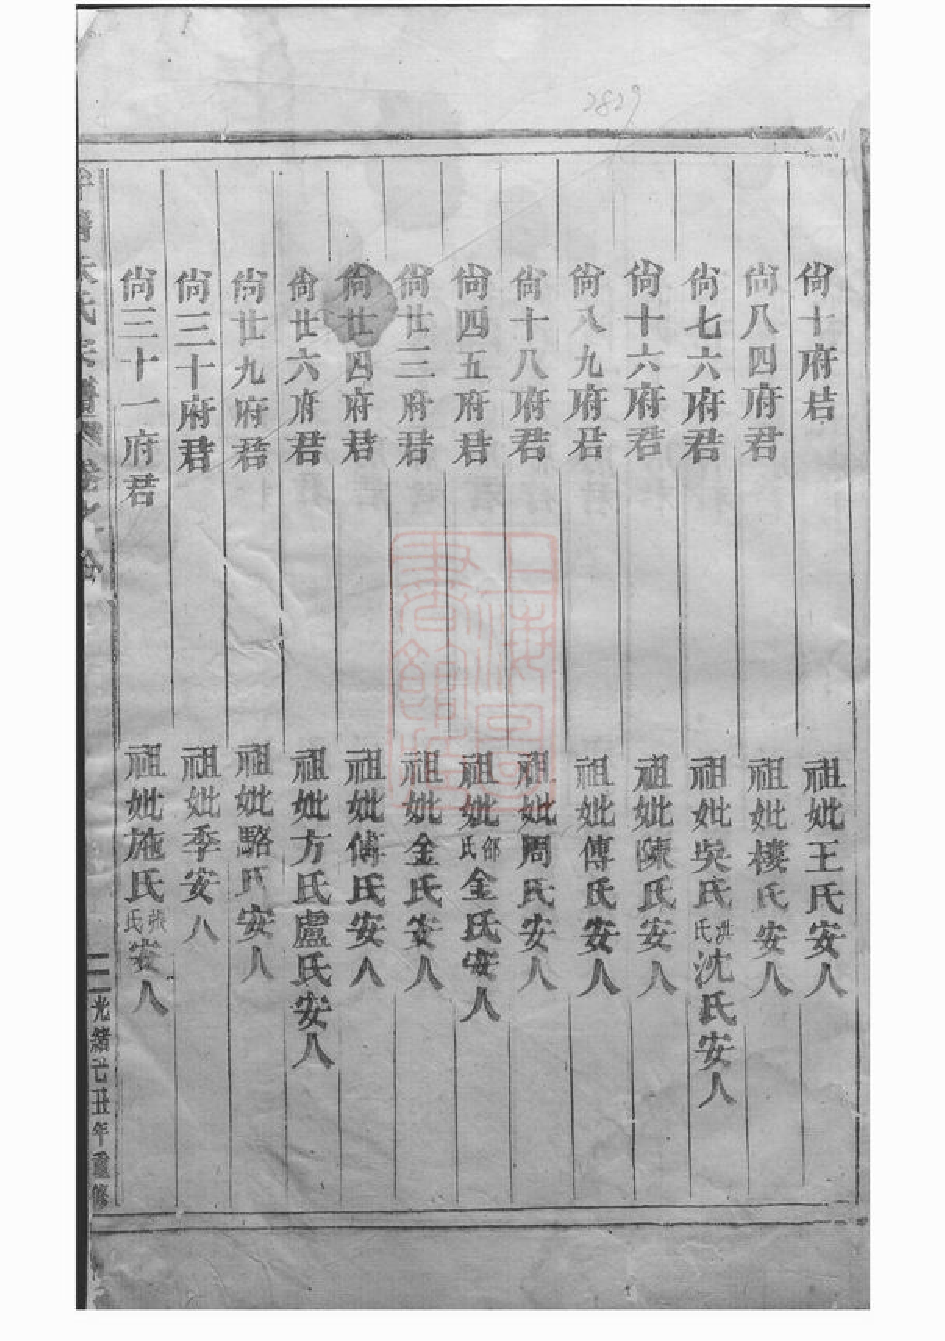 2829
尙十府君 祖妣王氏安人
尙八四府君 祖妣樓氏安人
尙七六府君 祖妣吳氏洪氏沈氏安人
尙十六府君 祖妣陳氏安人
尙八九府君 祖妣傅氏安人
尙十八府君 祖妣周氏安人
尙四五府君 祖妣邵氏金氏安人
尙廿三府君 祖妣金氏安人
尙廿四府君 祖妣傅氏安人
尙廿六府君 祖妣方氏盧氏安人
尙廿九府君 祖妣駱氏安人
尙三十府君 祖妣季安人
尙三十一府君 祖妣施氏張氏安人
氏宗譜 卷之
光緒丑年重修
上海圖書館藏